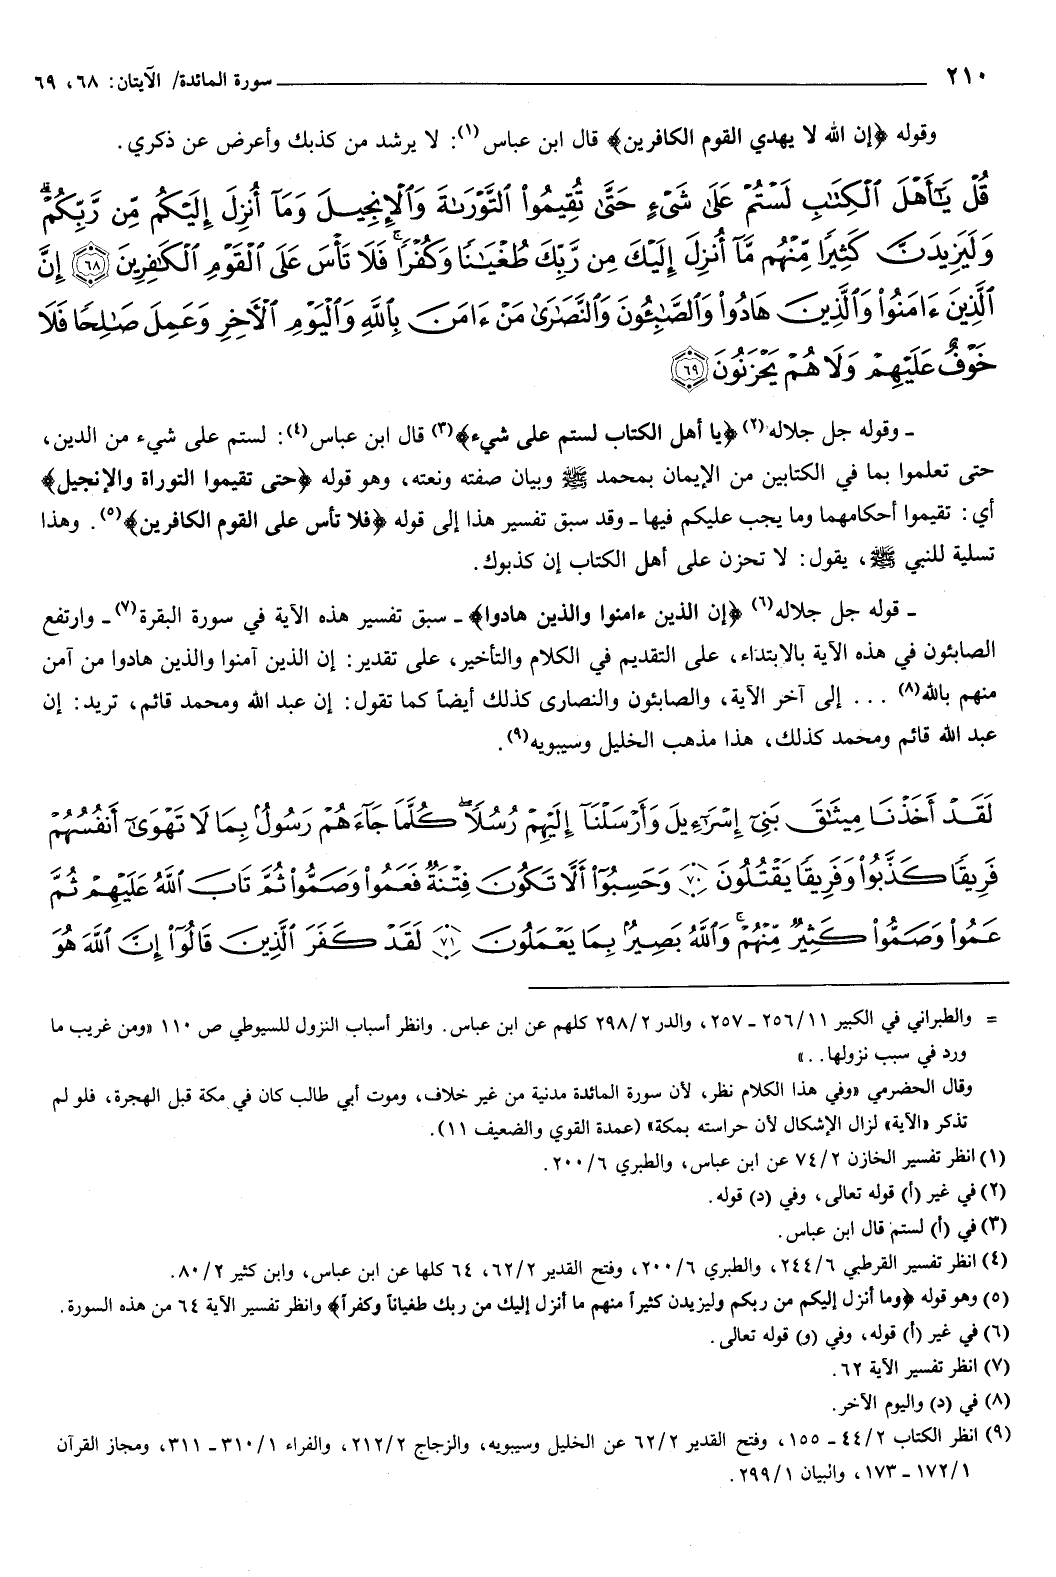 ٢١٠ سورة المائدة/ الآيتان: ٦٨، ٦٩
وقوله ﴿إن الله لا يهدي القوم الكافرين﴾ قال ابن عباس(١): لا يرشد من كذبك وأعرض عن ذكري.
قُلْ يَـٰٓأَهْلَ ٱلْكِتَـٰبِ لَسْتُمْ عَلَىٰ شَىْءٍ حَتَّىٰ تُقِيمُوا۟ ٱلتَّوْرَىٰةَ وَٱلْإِنجِيلَ وَمَآ أُنزِلَ إِلَيْكُم مِّن رَّبِّكُمْ ۗ
وَلَيَزِيدَنَّ كَثِيرًا مِّنْهُم مَّآ أُنزِلَ إِلَيْكَ مِن رَّبِّكَ طُغْيَـٰنًا وَكُفْرًا ۖ فَلَا تَأْسَ عَلَى ٱلْقَوْمِ ٱلْكَـٰفِرِينَ ٦٨ إِنَّ
ٱلَّذِينَ ءَامَنُوا۟ وَٱلَّذِينَ هَادُوا۟ وَٱلصَّـٰبِـُٔونَ وَٱلنَّصَـٰرَىٰ مَنْ ءَامَنَ بِٱللَّهِ وَٱلْيَوْمِ ٱلْـَٔاخِرِ وَعَمِلَ صَـٰلِحًا فَلَا
خَوْفٌ عَلَيْهِمْ وَلَا هُمْ يَحْزَنُونَ ٦٩
ـ وقوله جل جلاله(٢) ﴿يا أهل الكتاب لستم على شيء﴾(٣) قال ابن عباس(٤): لستم على شيء من الدين،
حتى تعلموا بما في الكتابين من الإيمان بمحمد ﷺ وبيان صفته ونعته، وهو قوله ﴿حتى تقيموا التوراة والإنجيل﴾
أي: تقيموا أحكامهما وما يجب عليكم فيها ـ وقد سبق تفسير هذا إلى قوله ﴿فلا تأس على القوم الكافرين﴾(٥). وهذا
تسلية للنبي ﷺ، يقول: لا تحزن على أهل الكتاب إن كذبوك.
ـ قوله جل جلاله(٦) ﴿إن الذين ءامنوا والذين هادوا﴾ ـ سبق تفسير هذه الآية في سورة البقرة(٧) ـ وارتفع
الصابئون في هذه الآية بالابتداء، على التقديم في الكلام والتأخير، على تقدير: إن الذين آمنوا والذين هادوا من آمن
منهم بالله(٨) ... إلى آخر الآية، والصابئون والنصارى كذلك أيضاً كما تقول: إن عبد الله ومحمد قائم، تريد: إن
عبد الله قائم ومحمد كذلك، هذا مذهب الخليل وسيبويه(٩).
لَقَدْ أَخَذْنَا مِيثَـٰقَ بَنِىٓ إِسْرَٰٓءِيلَ وَأَرْسَلْنَآ إِلَيْهِمْ رُسُلًا ۖ كُلَّمَا جَآءَهُمْ رَسُولٌۢ بِمَا لَا تَهْوَىٰٓ أَنفُسُهُمْ
فَرِيقًا كَذَّبُوا۟ وَفَرِيقًا يَقْتُلُونَ ٧٠ وَحَسِبُوٓا۟ أَلَّا تَكُونَ فِتْنَةٌ فَعَمُوا۟ وَصَمُّوا۟ ثُمَّ تَابَ ٱللَّهُ عَلَيْهِمْ ثُمَّ
عَمُوا۟ وَصَمُّوا۟ كَثِيرٌ مِّنْهُمْ ۚ وَٱللَّهُ بَصِيرٌۢ بِمَا يَعْمَلُونَ ٧١ لَقَدْ كَفَرَ ٱلَّذِينَ قَالُوٓا۟ إِنَّ ٱللَّهَ هُوَ
= والطبراني في الكبير ٢٥٦/١١ ـ ٢٥٧، والدر ٢٩٨/٢ كلهم عن ابن عباس. وانظر أسباب النزول للسيوطي ص ١١٠ «ومن غريب ما
ورد في سبب نزولها..»
وقال الحضرمي «وفي هذا الكلام نظر، لأن سورة المائدة مدنية من غير خلاف، وموت أبي طالب كان في مكة قبل الهجرة، فلو لم
تذكر «الآية» لزال الإشكال لأن حراسته بمكة» (عمدة القوي والضعيف ١١).
(١) انظر تفسير الخازن ٧٤/٢ عن ابن عباس، والطبري ٢٠٠/٦.
(٢) في غير (أ) قوله تعالى، وفي (د) قوله.
(٣) في (أ) لستم قال ابن عباس.
(٤) انظر تفسير القرطبي ٢٤٤/٦، والطبري ٢٠٠/٦، وفتح القدير ٦٢/٢، ٦٤ كلها عن ابن عباس، وابن كثير ٨٠/٢.
(٥) وهو قوله ﴿وما أنزل إليكم من ربكم وليزيدن كثيراً منهم ما أنزل إليك من ربك طغياناً وكفراً﴾ وانظر تفسير الآية ٦٤ من هذه السورة.
(٦) في غير (أ) قوله، وفي (و) قوله تعالى.
(٧) انظر تفسير الآية ٦٢.
(٨) في (د) واليوم الآخر.
(٩) انظر الكتاب ٤٤/٢ ـ ١٥٥، وفتح القدير ٦٢/٢ عن الخليل وسيبويه، والزجاج ٢١٢/٢، والفراء ٣١٠/١ ـ ٣١١، ومجاز القرآن
١٧٢/١ ـ ١٧٣، والبيان ٢٩٩/١.